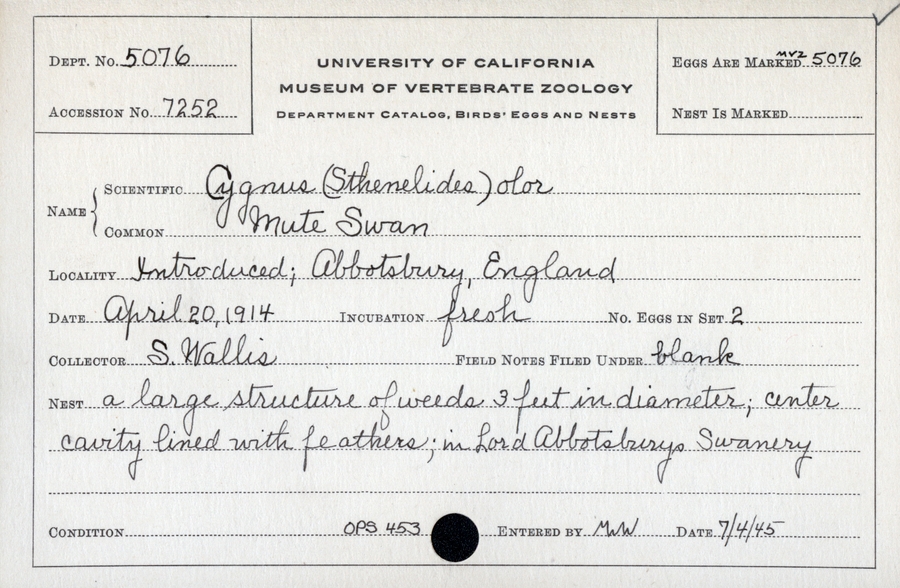 Dept. No. 5076
Accession No. 7252
UNIVERSITY OF CALIFORNIA
MUSEUM OF VERTEBRATE ZOOLOGY
Department Catalog, Birds' Eggs and Nests
Eggs Are Marked MVZ 5076
Nest Is Marked
Name { Scientific Cygnus (Sthenelides) olor
Common Mute Swan
Locality Introduced; Abbotsbury, England
Date April 20, 1914 Incubation fresh No. Eggs in Set 2
Collector S. Wallis Field Notes Filed Under blank
Nest a large structure of weeds 3 feet in diameter; center
cavity lined with feathers; in Lord Abbotsburys Swanery
Condition OPS 453 Entered by MWW Date 7/4/45